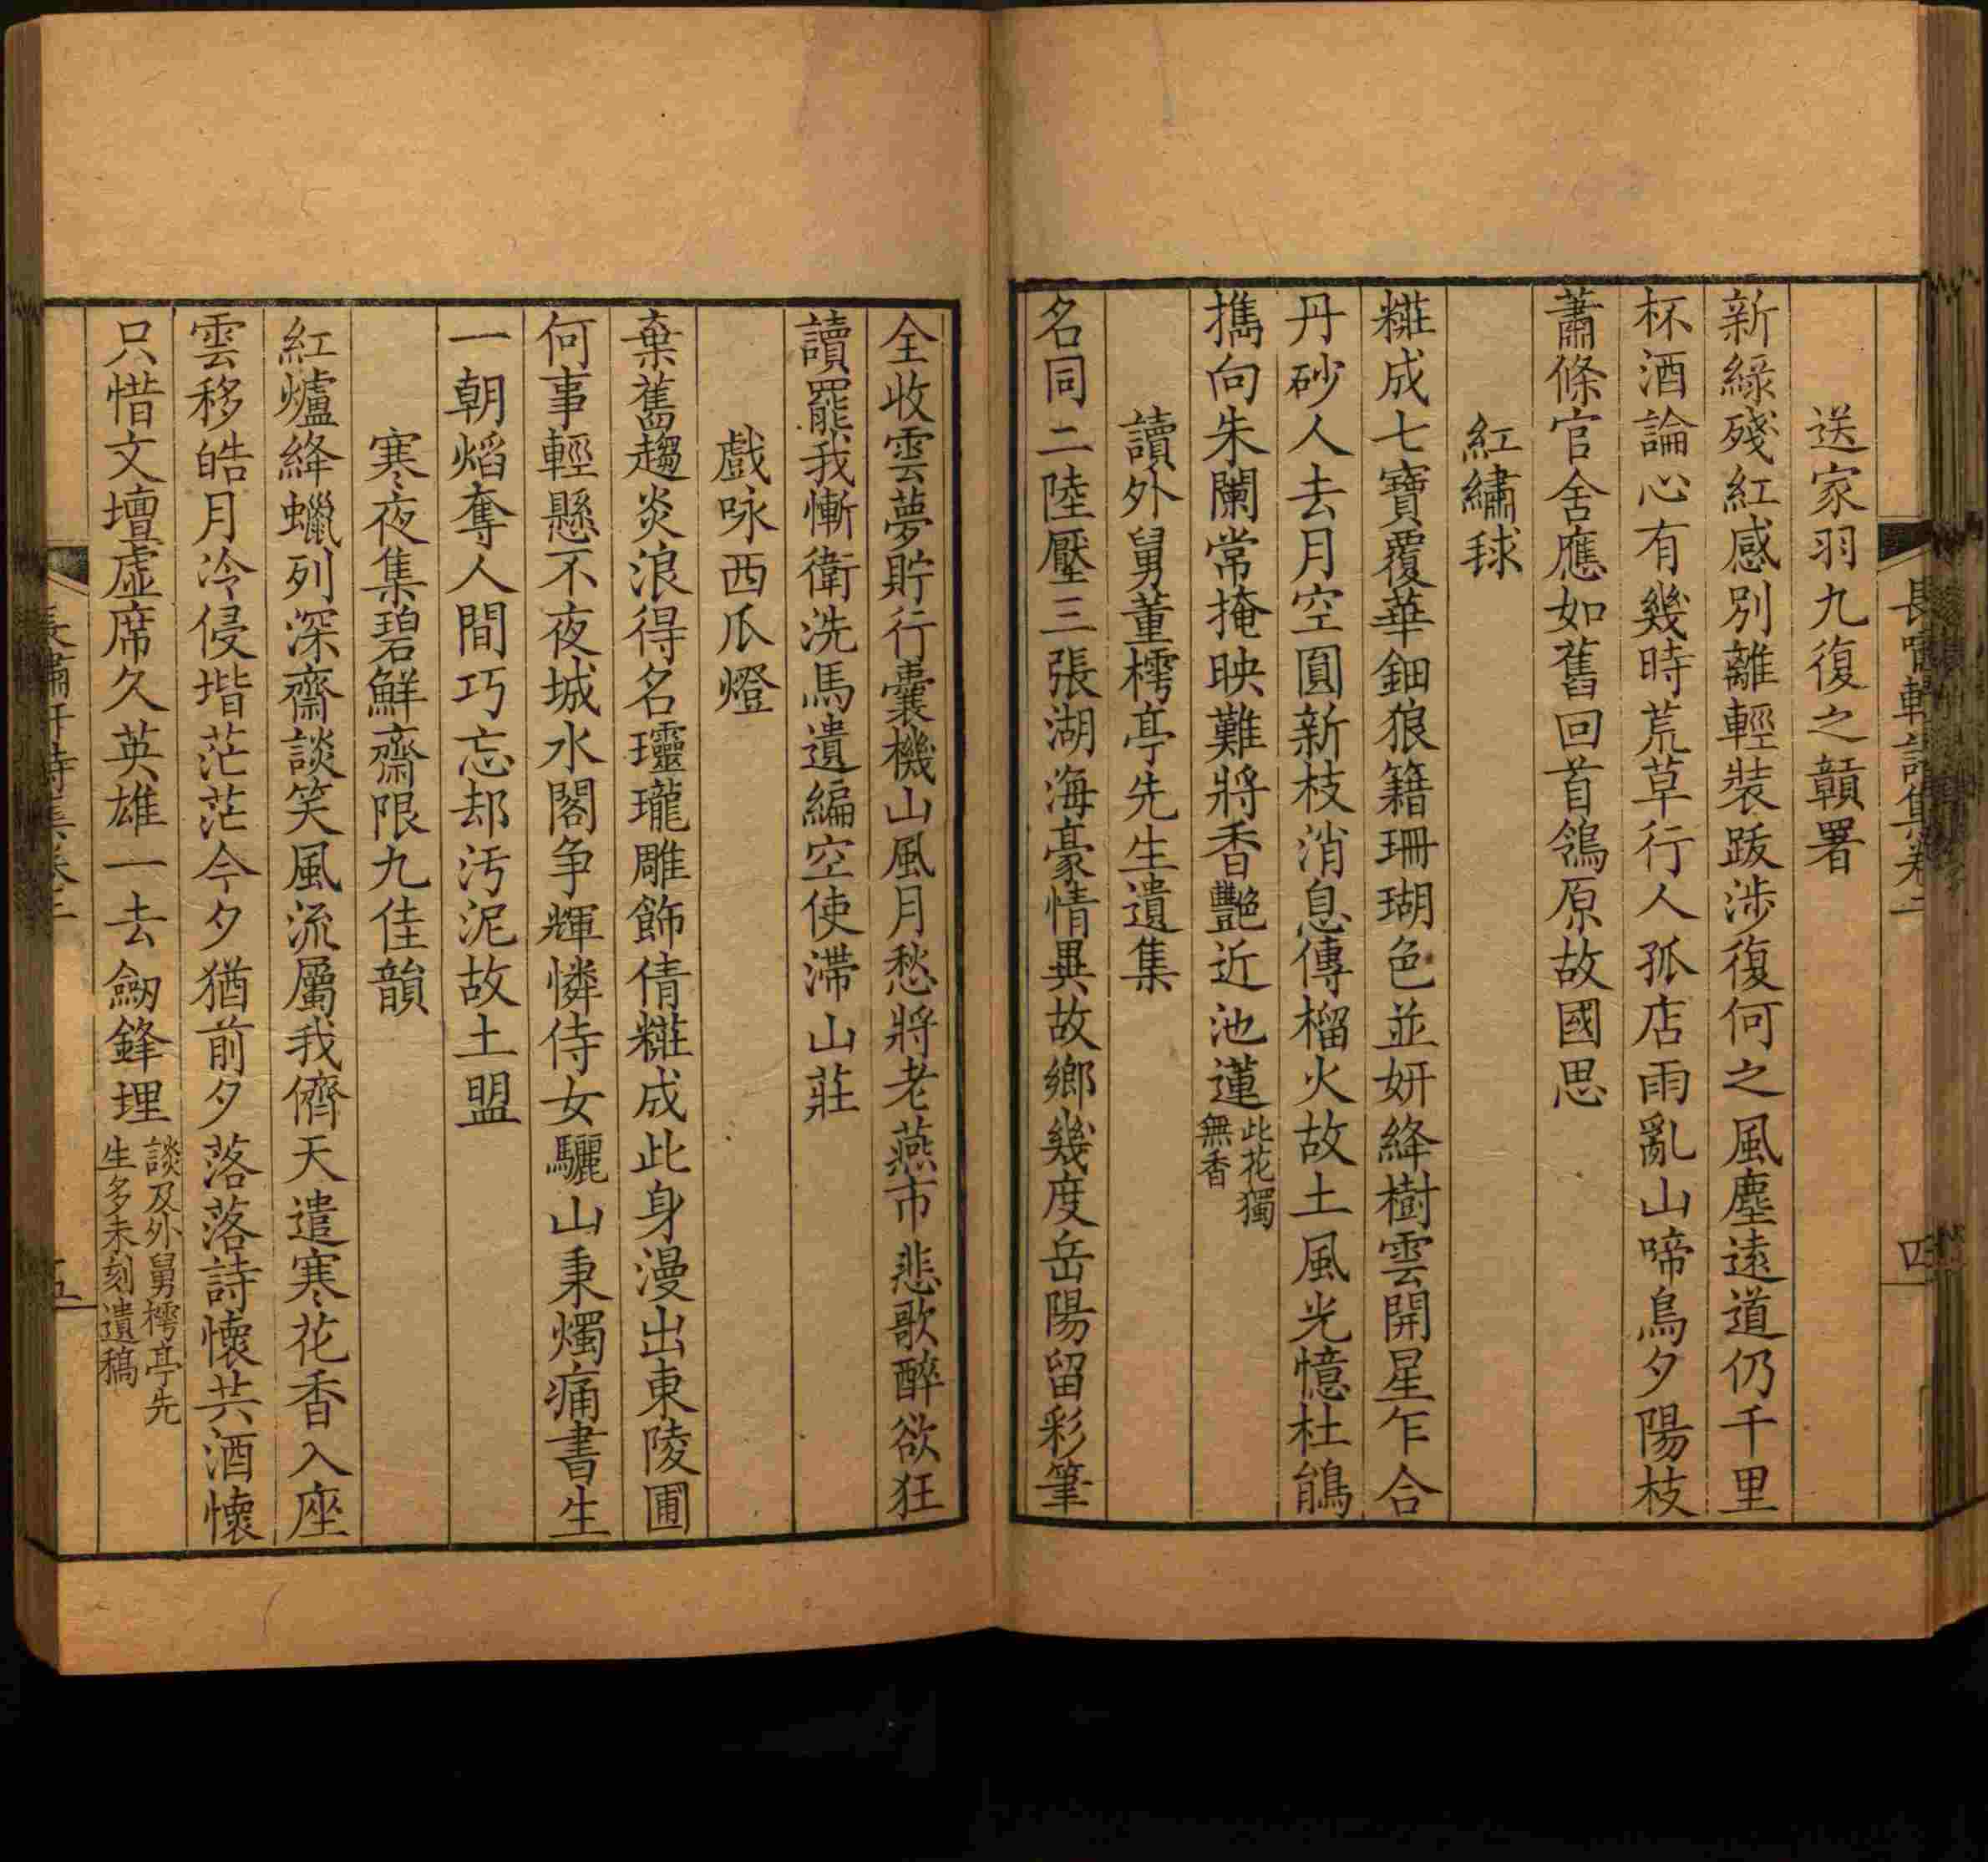 長嘯軒詩集卷二
四
送家羽九復之贛署
新綠殘紅感別離輕裝跋涉復何之風塵遠道仍千里
杯酒論心有幾時荒草行人孤店雨亂山啼鳥夕陽枝
蕭條官舍應如舊回首鴒原故國思
紅繡毬
糚成七寶覆華鈿狼籍珊瑚色並妍絳樹雲開星乍合
丹砂人去月空圓新枝消息傳榴火故土風光憶杜鵑
擕向朱闌常掩映難將香艷近池蓮此花獨
無香
讀外舅董樗亭先生遺集
名同二陸壓三張湖海豪情異故鄉幾度岳陽留彩筆
全收雲夢貯行囊機山風月愁將老燕市悲歌醉欲狂
讀罷我慚衛洗馬遺編空使滯山莊
戲咏西瓜燈
棄舊趨炎浪得名瓏雕飾倩糚成此身漫出東陵圃
何事輕懸不夜城水閣争輝憐侍女驪山秉燭痛書生
一朝熖奪人間巧忘却汚泥故土盟
寒夜集碧鮮齋限九佳韻
紅爐絳蠟列深齋談笑風流屬我儕天遣寒花香入座
雲移皓月冷侵堦茫茫今夕猶前夕落落詩懷共酒懷
只惜文壇虛席久英雄一去劒鋒埋談及外舅樗亭先
生多未刻遺稿
長嘯軒詩集卷二
五